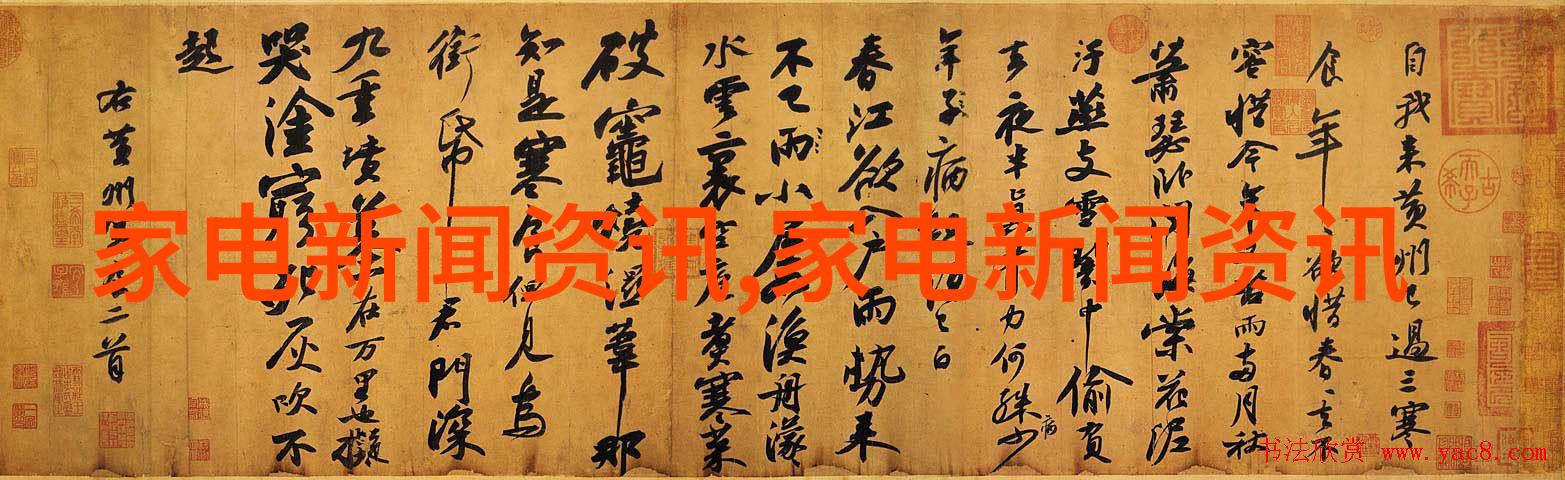 自我来黄州已過三寒
食年年欲惜春春去不
容惜今年又苦雨两月秋
蕭瑟卧聞海棠花泥
汙燕支雪闇中偷負
去夜半真有力何殊少
病
年子病起頭已白
春江欲入户雨勢来
不已雨小屋如漁舟濛
水雲裏空庖煮寒菜
破竈燒濕葦那
知是寒食但見烏
銜帋君門深
九重墳墓在万里也擬
哭塗窮死灰吹不
起
右黄州寒食二首
家电新闻资讯,家电新闻资讯
书法欣赏 www.yac8.com